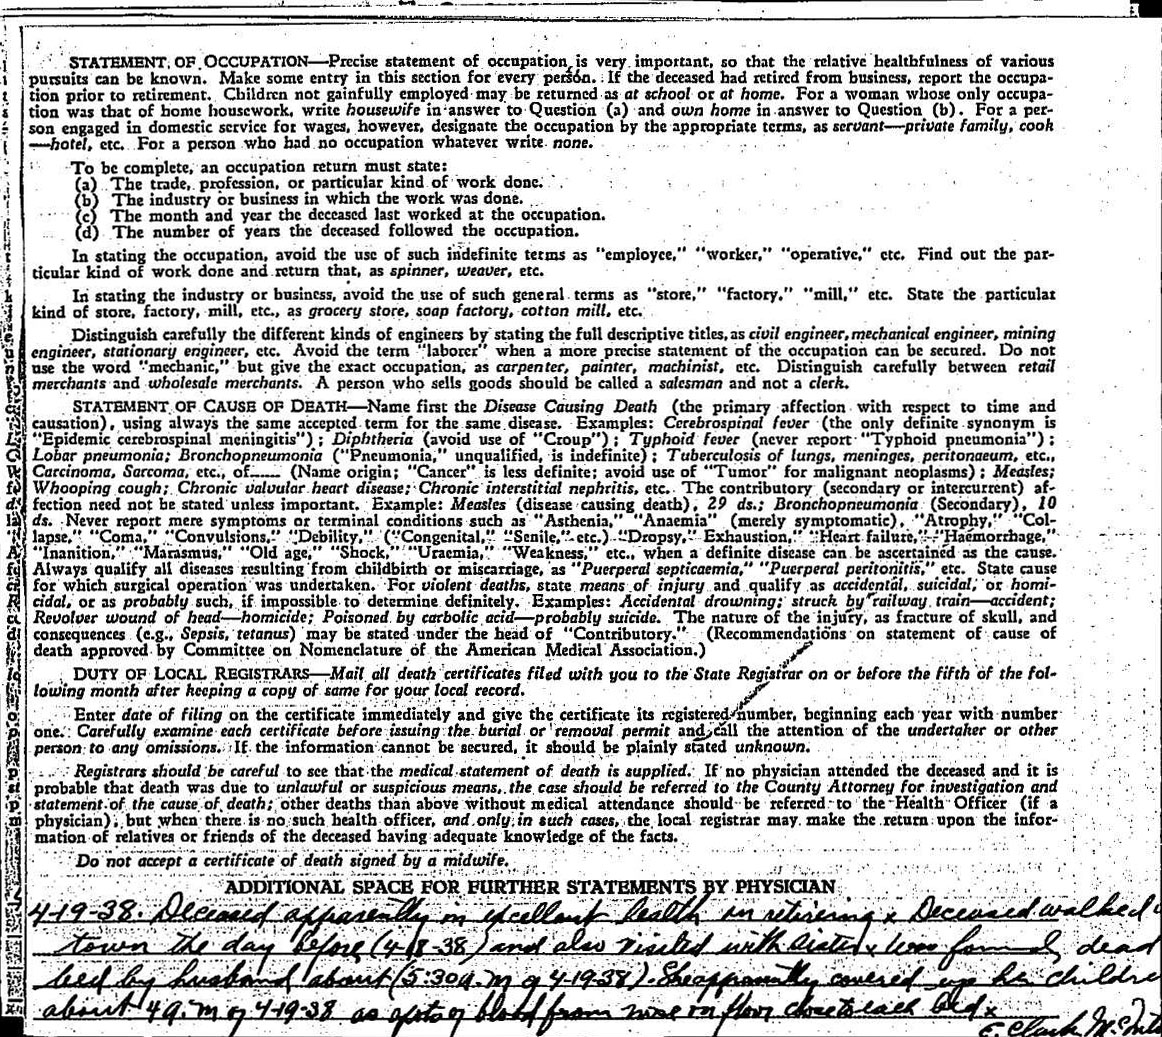 STATEMENT OF OCCUPATION—Precise statement of occupation is very important, so that the relative healthfulness of various
pursuits can be known. Make some entry in this section for every person. If the deceased had retired from business, report the occupa-
tion prior to retirement. Children not gainfully employed may be returned as at school or at home. For a woman whose only occupa-
tion was that of home housework, write housewife in answer to Question (a) and own home in answer to Question (b). For a per-
son engaged in domestic service for wages, however, designate the occupation by the appropriate terms, as servant—private family, cook
—hotel, etc. For a person who had no occupation whatever write none.
To be complete, an occupation return must state:
(a) The trade, profession, or particular kind of work done.
(b) The industry or business in which the work was done.
(c) The month and year the deceased last worked at the occupation.
(d) The number of years the deceased followed the occupation.
In stating the occupation, avoid the use of such indefinite terms as "employee," "worker," "operative," etc. Find out the par-
ticular kind of work done and return that, as spinner, weaver, etc.
In stating the industry or business, avoid the use of such general terms as "store," "factory," "mill," etc. State the particular
kind of store, factory, mill, etc., as grocery store, soap factory, cotton mill, etc.
Distinguish carefully the different kinds of engineers by stating the full descriptive titles, as civil engineer, mechanical engineer, mining
engineer, stationary engineer, etc. Avoid the term "laborer" when a more precise statement of the occupation can be secured. Do not
use the word "mechanic," but give the exact occupation, as carpenter, painter, machinist, etc. Distinguish carefully between retail
merchants and wholesale merchants. A person who sells goods should be called a salesman and not a clerk.
STATEMENT OF CAUSE OF DEATH—Name first the Disease Causing Death (the primary affection with respect to time and
causation), using always the same accepted term for the same disease. Examples: Cerebrospinal fever (the only definite synonym is
"Epidemic cerebrospinal meningitis"); Diphtheria (avoid use of "Croup"); Typhoid fever (never report "Typhoid pneumonia");
Lobar pneumonia; Bronchopneumonia ("Pneumonia," unqualified, is indefinite); Tuberculosis of lungs, meninges, peritonaeum, etc.,
Carcinoma, Sarcoma, etc., of____ (Name origin; "Cancer" is less definite; avoid use of "Tumor" for malignant neoplasms); Measles;
Whooping cough; Chronic valvular heart disease; Chronic interstitial nephritis, etc. The contributory (secondary or intercurrent) af-
fection need not be stated unless important. Example: Measles (disease causing death), 29 ds.; Bronchopneumonia (Secondary), 10
ds. Never report mere symptoms or terminal conditions such as "Asthenia," "Anaemia" (merely symptomatic), "Atrophy," "Col-
lapse," "Coma," "Convulsions," "Debility," ("Congenital," "Senile," etc.) "Dropsy," Exhaustion," "Heart failure," "Haemorrhage,"
"Inanition," "Marasmus," "Old age," "Shock," "Uraemia," "Weakness," etc., when a definite disease can be ascertained as the cause.
Always qualify all diseases resulting from childbirth or miscarriage, as "Puerperal septicaemia," "Puerperal peritonitis," etc. State cause
for which surgical operation was undertaken. For violent deaths, state means of injury and qualify as accidental, suicidal, or homi-
cidal, or as probably such, if impossible to determine definitely. Examples: Accidental drowning; struck by railway train—accident;
Revolver wound of head—homicide; Poisoned by carbolic acid—probably suicide. The nature of the injury, as fracture of skull, and
consequences (e.g., Sepsis, tetanus) may be stated under the head of "Contributory." (Recommendations on statement of cause of
death approved by Committee on Nomenclature of the American Medical Association.)
DUTY OF LOCAL REGISTRARS—Mail all death certificates filed with you to the State Registrar on or before the fifth of the fol-
lowing month after keeping a copy of same for your local record.
Enter date of filing on the certificate immediately and give the certificate its registered number, beginning each year with number
one. Carefully examine each certificate before issuing the burial or removal permit and call the attention of the undertaker or other
person to any omissions. If the information cannot be secured, it should be plainly stated unknown.
Registrars should be careful to see that the medical statement of death is supplied. If no physician attended the deceased and it is
probable that death was due to unlawful or suspicious means, the case should be referred to the County Attorney for investigation and
statement of the cause of death; other deaths than above without medical attendance should be referred to the Health Officer (if a
physician), but when there is no such health officer, and only in such cases, the local registrar may make the return upon the infor-
mation of relatives or friends of the deceased having adequate knowledge of the facts.
Do not accept a certificate of death signed by a midwife.
ADDITIONAL SPACE FOR FURTHER STATEMENTS BY PHYSICIAN
4-19-38. Deceased apparently in excellent health on retirering x Deceased walked
town the day before (4-18-38) and also visited with sister x Was found dead
bed by husband about (5:30 a.m of 4-19-38). She apparently covered up her childre
about 4 a.m of 4-19-38 as spots of blood from nose on floor close to each bed x
E. Clark